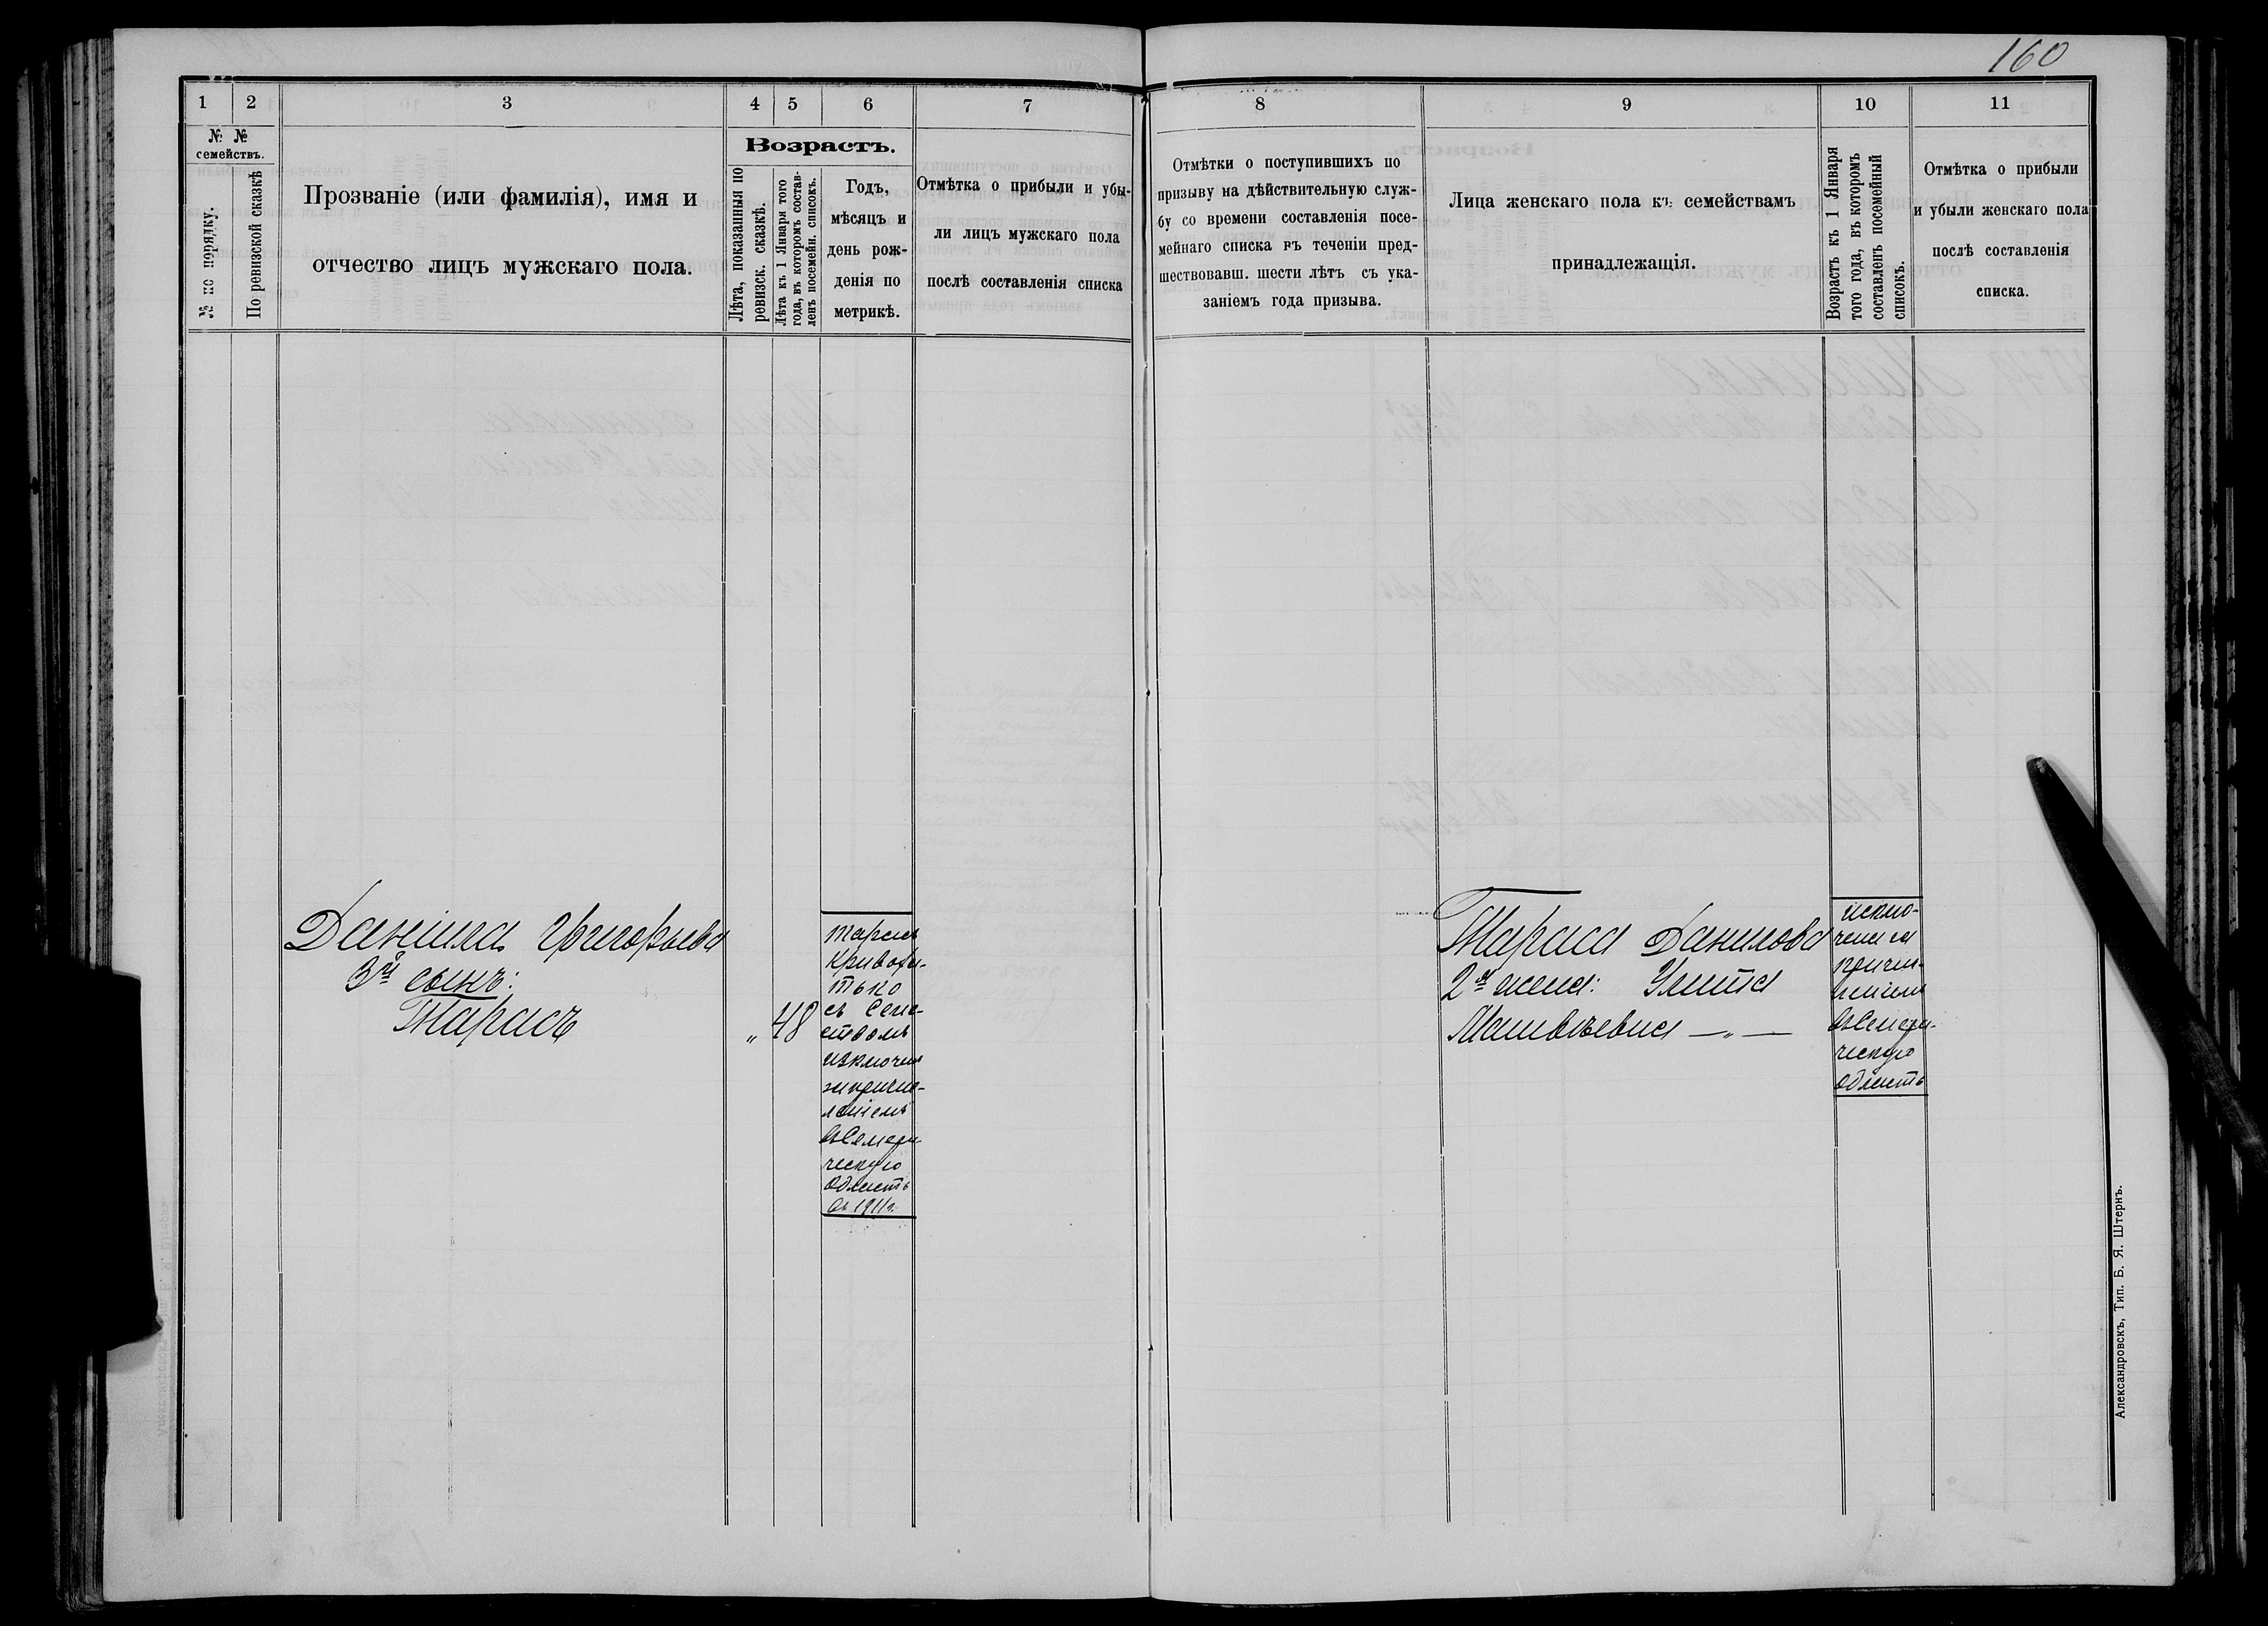 160
1 2 3 4 5 6 7
№ №
семействъ.
№ по порядку.
По ревизской сказкѣ
Прозваніе (или фамилія), имя и
отчество лицъ мужскаго пола.
Возрастъ.
Лѣта, показанныя по
ревизск. сказкѣ.
Лѣта къ 1 Января того
года, въ которомъ состав-
ленъ посемейн. списокъ.
Годъ,
мѣсяцъ и
день рож-
денія по
метрикѣ.
Отмѣтка о прибыли и убы-
ли лицъ мужскаго пола
послѣ составленія списка
Даніила Григорьева
3й сынъ:
Тарасъ „ 48
Тарасъ
Криворо-
тько
съ Семе-
ствомъ
исключенъ
за причис-
леніемъ
въ Семире-
ческую
область
въ 1911 г.
8 9 10 11
Отмѣтки о поступившихъ по
призыву на дѣйствительную служ-
бу со времени составленія посе-
мейнаго списка въ теченіи пред-
шествовавш. шести лѣтъ съ ука-
заніемъ года призыва.
Лица женскаго пола къ семействамъ
принадлежащія.
Возрастъ къ 1 Января
того года, въ которомъ
составленъ посемейный
списокъ.
Отмѣтка о прибыли
и убыли женскаго пола
послѣ составленія
списка.
Тараса Данилова
2я жена: Улита
Матвѣевна — „ —
исклю-
чена за
причис-
леніемъ
въ Семире-
ческую
область
Александровскъ, Тип. Б. Я. Штернъ.